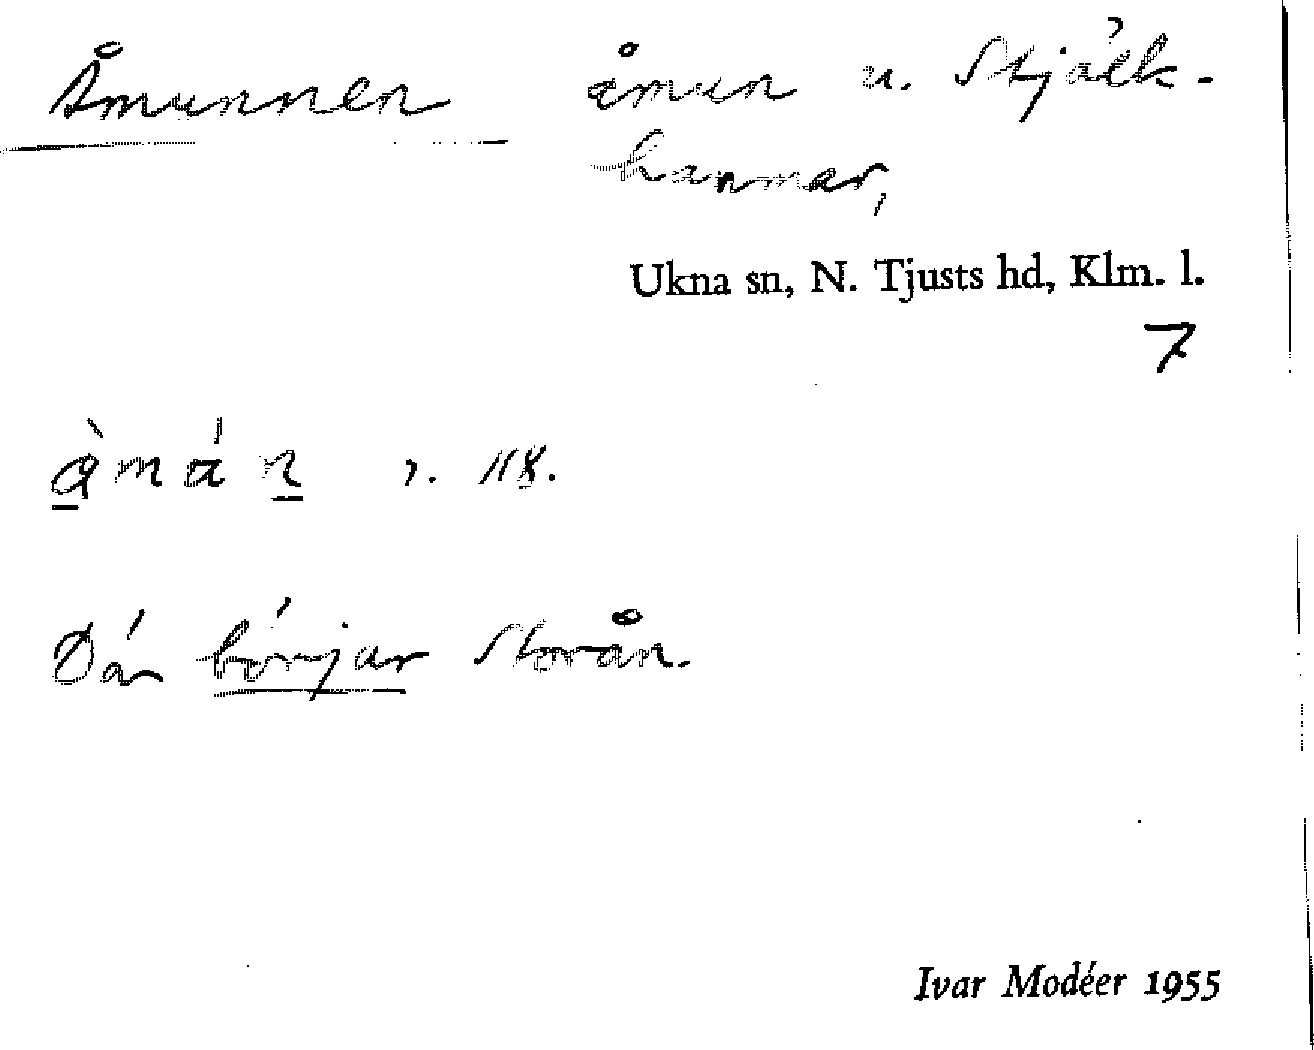 Åmunnen åmun u. Stjälk-
hammar,
Ukna sn, N. Tjusts hd, Klm. l.
7
Där börjar Storån.
Ivar Modéer 1955